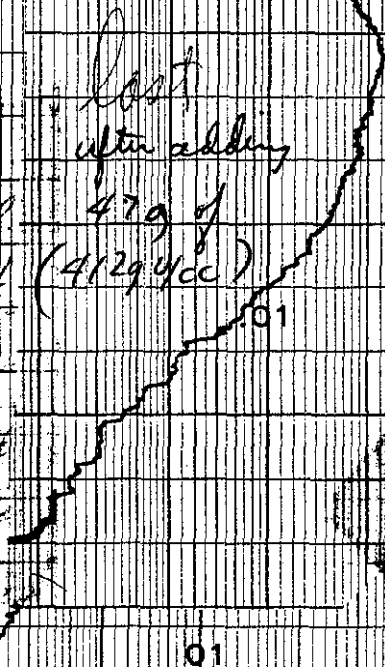 lost
after adding
47g of
(412g U/cc)
.01
01